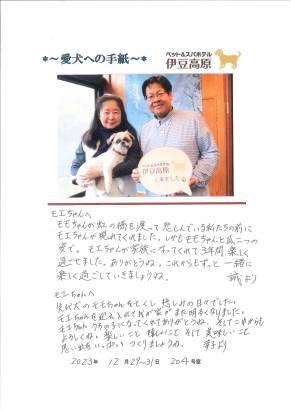 *~愛犬への手紙~*
ペット&スパホテル
伊豆高原
ペット&スパホテル
伊豆高原
に来ました。
モエちゃんへ
モモちゃんが虹の橋を渡って悲しんでいる私たちの前に
モエちゃんが現れてくれました。しかもモモちゃんと瓜二つの
姿で。モエちゃんが家族になってくれて3年間楽しく
過ごせました。ありがとうね。これからもずっと一緒に
楽しく過ごしていきましょうね。
誠より
モエちゃんへ
先代犬のモモちゃんを亡くし悲しみの日々でした。
モエちゃんを迎え入れて我が家がまた明るくなりました。
モエちゃんうちの子になってくれてありがとうね。そしてこれからも
よろしくね。楽しいこと嬉しいことそして美味しいこと
思い出をいっぱいつくりましょうね。
より
2023年 12月29~31日 204号室